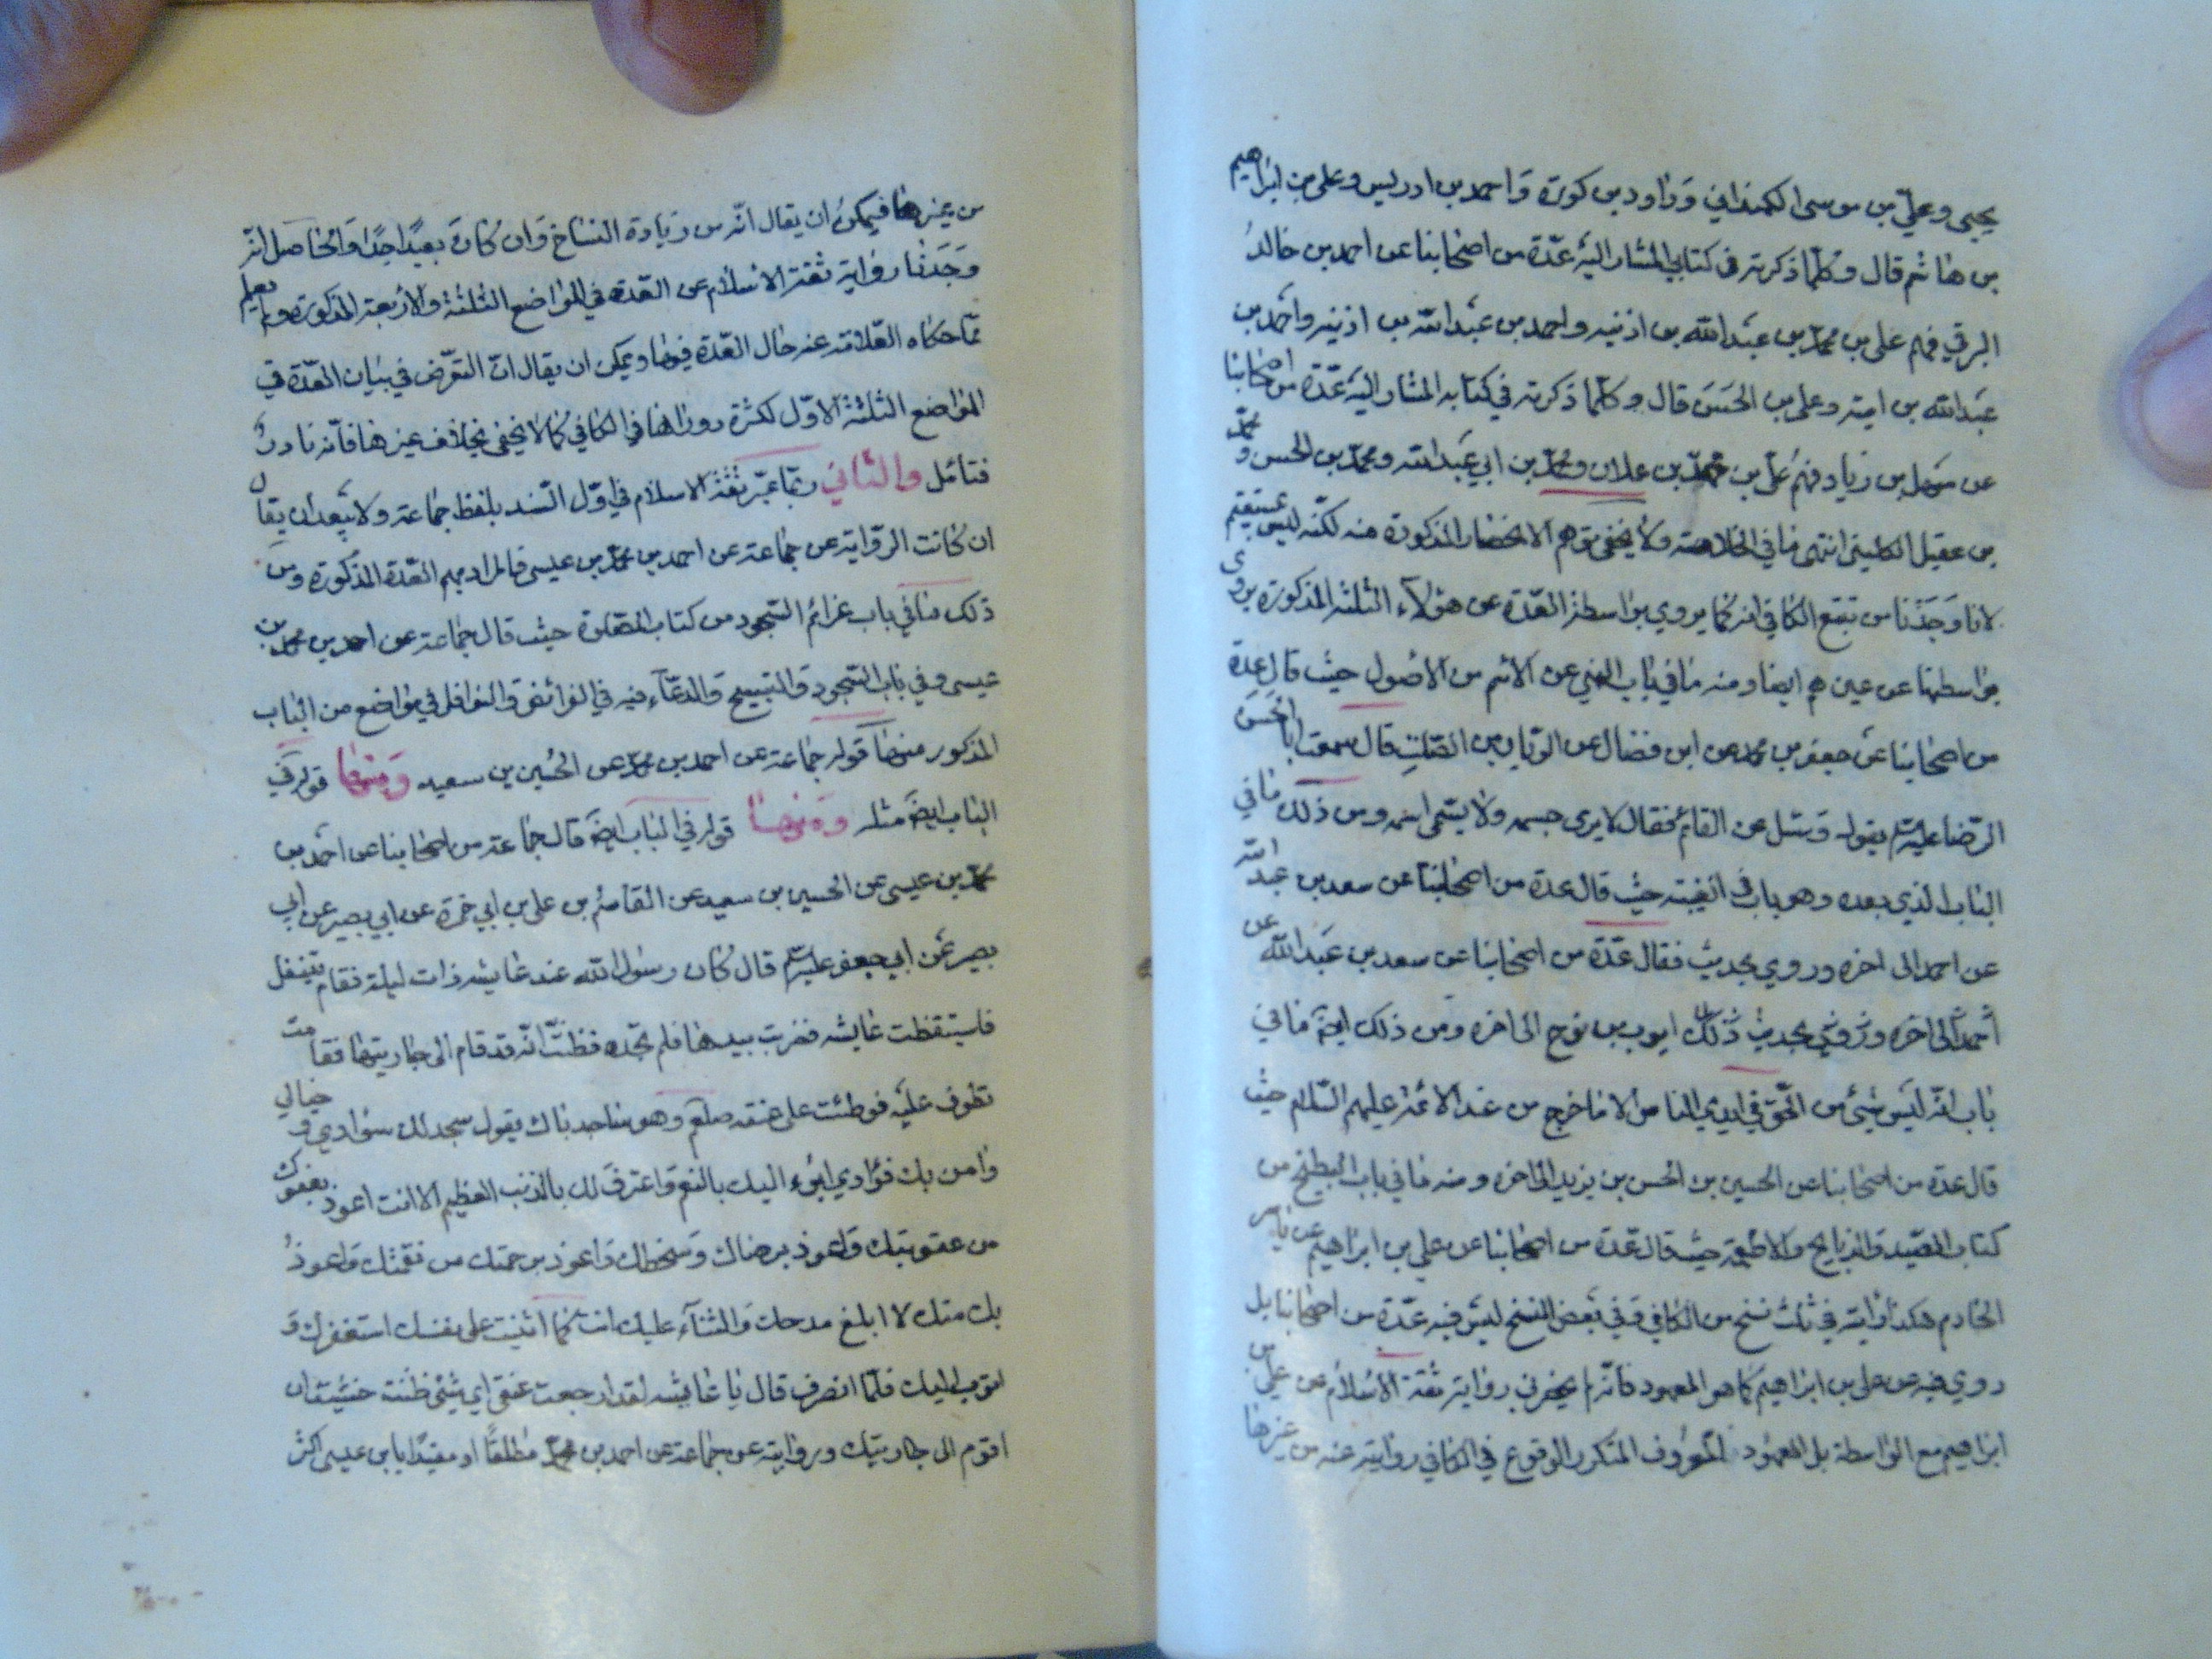 يحيى وعلي بن موسى الكمنداني وداود بن كورة واحمد بن ادريس وعلي بن ابراهيم
بن هاشم قال وكلما ذكرته في كتابي المشار اليه عدة من اصحابنا عن احمد بن خالد
البرقي فهم علي بن محمد بن عبد الله بن اذينه واحمد بن عبد الله بن اذينه واحمد بن
عبد الله بن اميه وعلي بن الحسن قال وكلما ذكرته في كتابه المشار اليه عدة من اصحابنا
عن سهل بن زياد فهم علي بن محمد بن علان ومحمد بن ابي عبد الله ومحمد بن الحسن ومحمد
بن عقيل الكليني انتهى ما في الخلاصة ولا يخفى توهم الانحصار المذكورة منه لكنه ليس بمستقيم
لانا وجدنا من تتبع الكافي انه كما يروي بواسطة العدة عن هؤلاء الثلثة المذكورة يروى
بواسطتها عن غيرهم ايضا ومنه ما في باب النهي عن الاسم من الاصول حيث قال عدة
من اصحابنا عن جعفر بن محمد عن ابن فضال عن الريان بن الصلت قال سمعت ابا الحسن
الرضا عليه السلم يقول وسئل عن القائم فقال لا يرى جسمه ولا يسمى اسمه ومن ذلك ما في
الباب الذي بعده وهو باب في الغيبة حيث قال عدة من اصحابنا عن سعد بن عبد الله
عن احمد الى اخره وروي بحديث فقال عدة من اصحابنا عن سعد بن عبد الله عن
احمد الى اخره وروي بحديث ذلك ايوب بن نوح الى اخره ومن ذلك ايضا ما في
باب انه ليس شيء من الحق في ايدي الناس الا ما خرج من عند الائمة عليهم السلام حيث
قال عدة من اصحابنا عن الحسين بن الحسن بن يزيد الى اخره ومنه ما في باب البطيخ من
كتاب الصيد والذبايح والاطعمة حيث قال عدة من اصحابنا عن علي بن ابراهيم عن ياسر
الخادم هكذا رايته في ثلث نسخ من الكافي وفي بعض النسخ ليس فيه عدة من اصحابنا بل
روي فيه عن علي بن ابراهيم كما هو المعهود فانه لم يحضرني رواية ثقة الاسلام عن علي بن
ابراهيم مع الواسطة بل المعهود المعروف المتكرر الوقوع في الكافي روايته عنه من غيرها
من غيرها فيمكن ان يقال انه من زيادة النساخ وان كان بعيدا جدا والحاصل انه
وجدنا رواية ثقة الاسلام عن العدة في المواضع الثلثة والاربعة المذكورة ولم يعلم
مما حكاه العلامة عنه حال العدة فيها ويمكن ان يقال ان التعرض في بيان العدة في
المواضع الثلثة الاول لكثرة دورانها في الكافي كما لا يخفى بخلاف غيرها فانه نادر
فتامل والثاني ربما عبر ثقة الاسلام في اول السند بلفظ جماعة ولا يبعد ان يقال
ان كانت الرواية عن جماعة عن احمد بن محمد بن عيسى فالمراد بهم العدة المذكورة ومن
ذلك ما في باب عزائم السجود من كتاب الصلوة حيث قال جماعة عن احمد بن محمد بن
عيسى وفي باب السجود والتسبيح والدعاء فيه في الفرائض والنوافل في مواضع من الباب
المذكور منها قوله جماعة عن احمد بن محمد عن الحسين بن سعيد ومنها قوله في
الباب ايضا مثله ومنها قوله في الباب ايضا قال جماعة من اصحابنا عن احمد بن
محمد بن عيسى عن الحسين بن سعيد عن القاسم بن علي بن ابي حمزة عن ابي بصير عن ابي
بصير عن ابي جعفر عليه السلم قال كان رسول الله عند عايشه ذات ليلة فقام يتنفل
فاستيقظت عايشه فضربت بيدها فلم تجده فظنت انه قد قام الى جاريتها فقامت
تطوف عليه فوطئت على عنقه صلعم وهو ساجد باك يقول سجد لك سوادي وخيالي
وامن بك فؤادي ابوء اليك بالنعم واعترف لك بالذنب العظيم الا انت اعوذ بعفوك
من عقوبتك واعوذ برضاك وسخطك واعوذ برحمتك من نقمتك واعوذ
بك منك لا ابلغ مدحك والثناء عليك انت كما اثنيت على نفسك استغفرك و
اتوب اليك فلما انصرف قال يا عايشه لقد اوجعت عنقي اي شيء ظننت خشيت ان
اقوم الى جاريتك وروايته عن جماعة عن احمد بن محمد مطلقا او مقيدا بابن عيسى اكثر